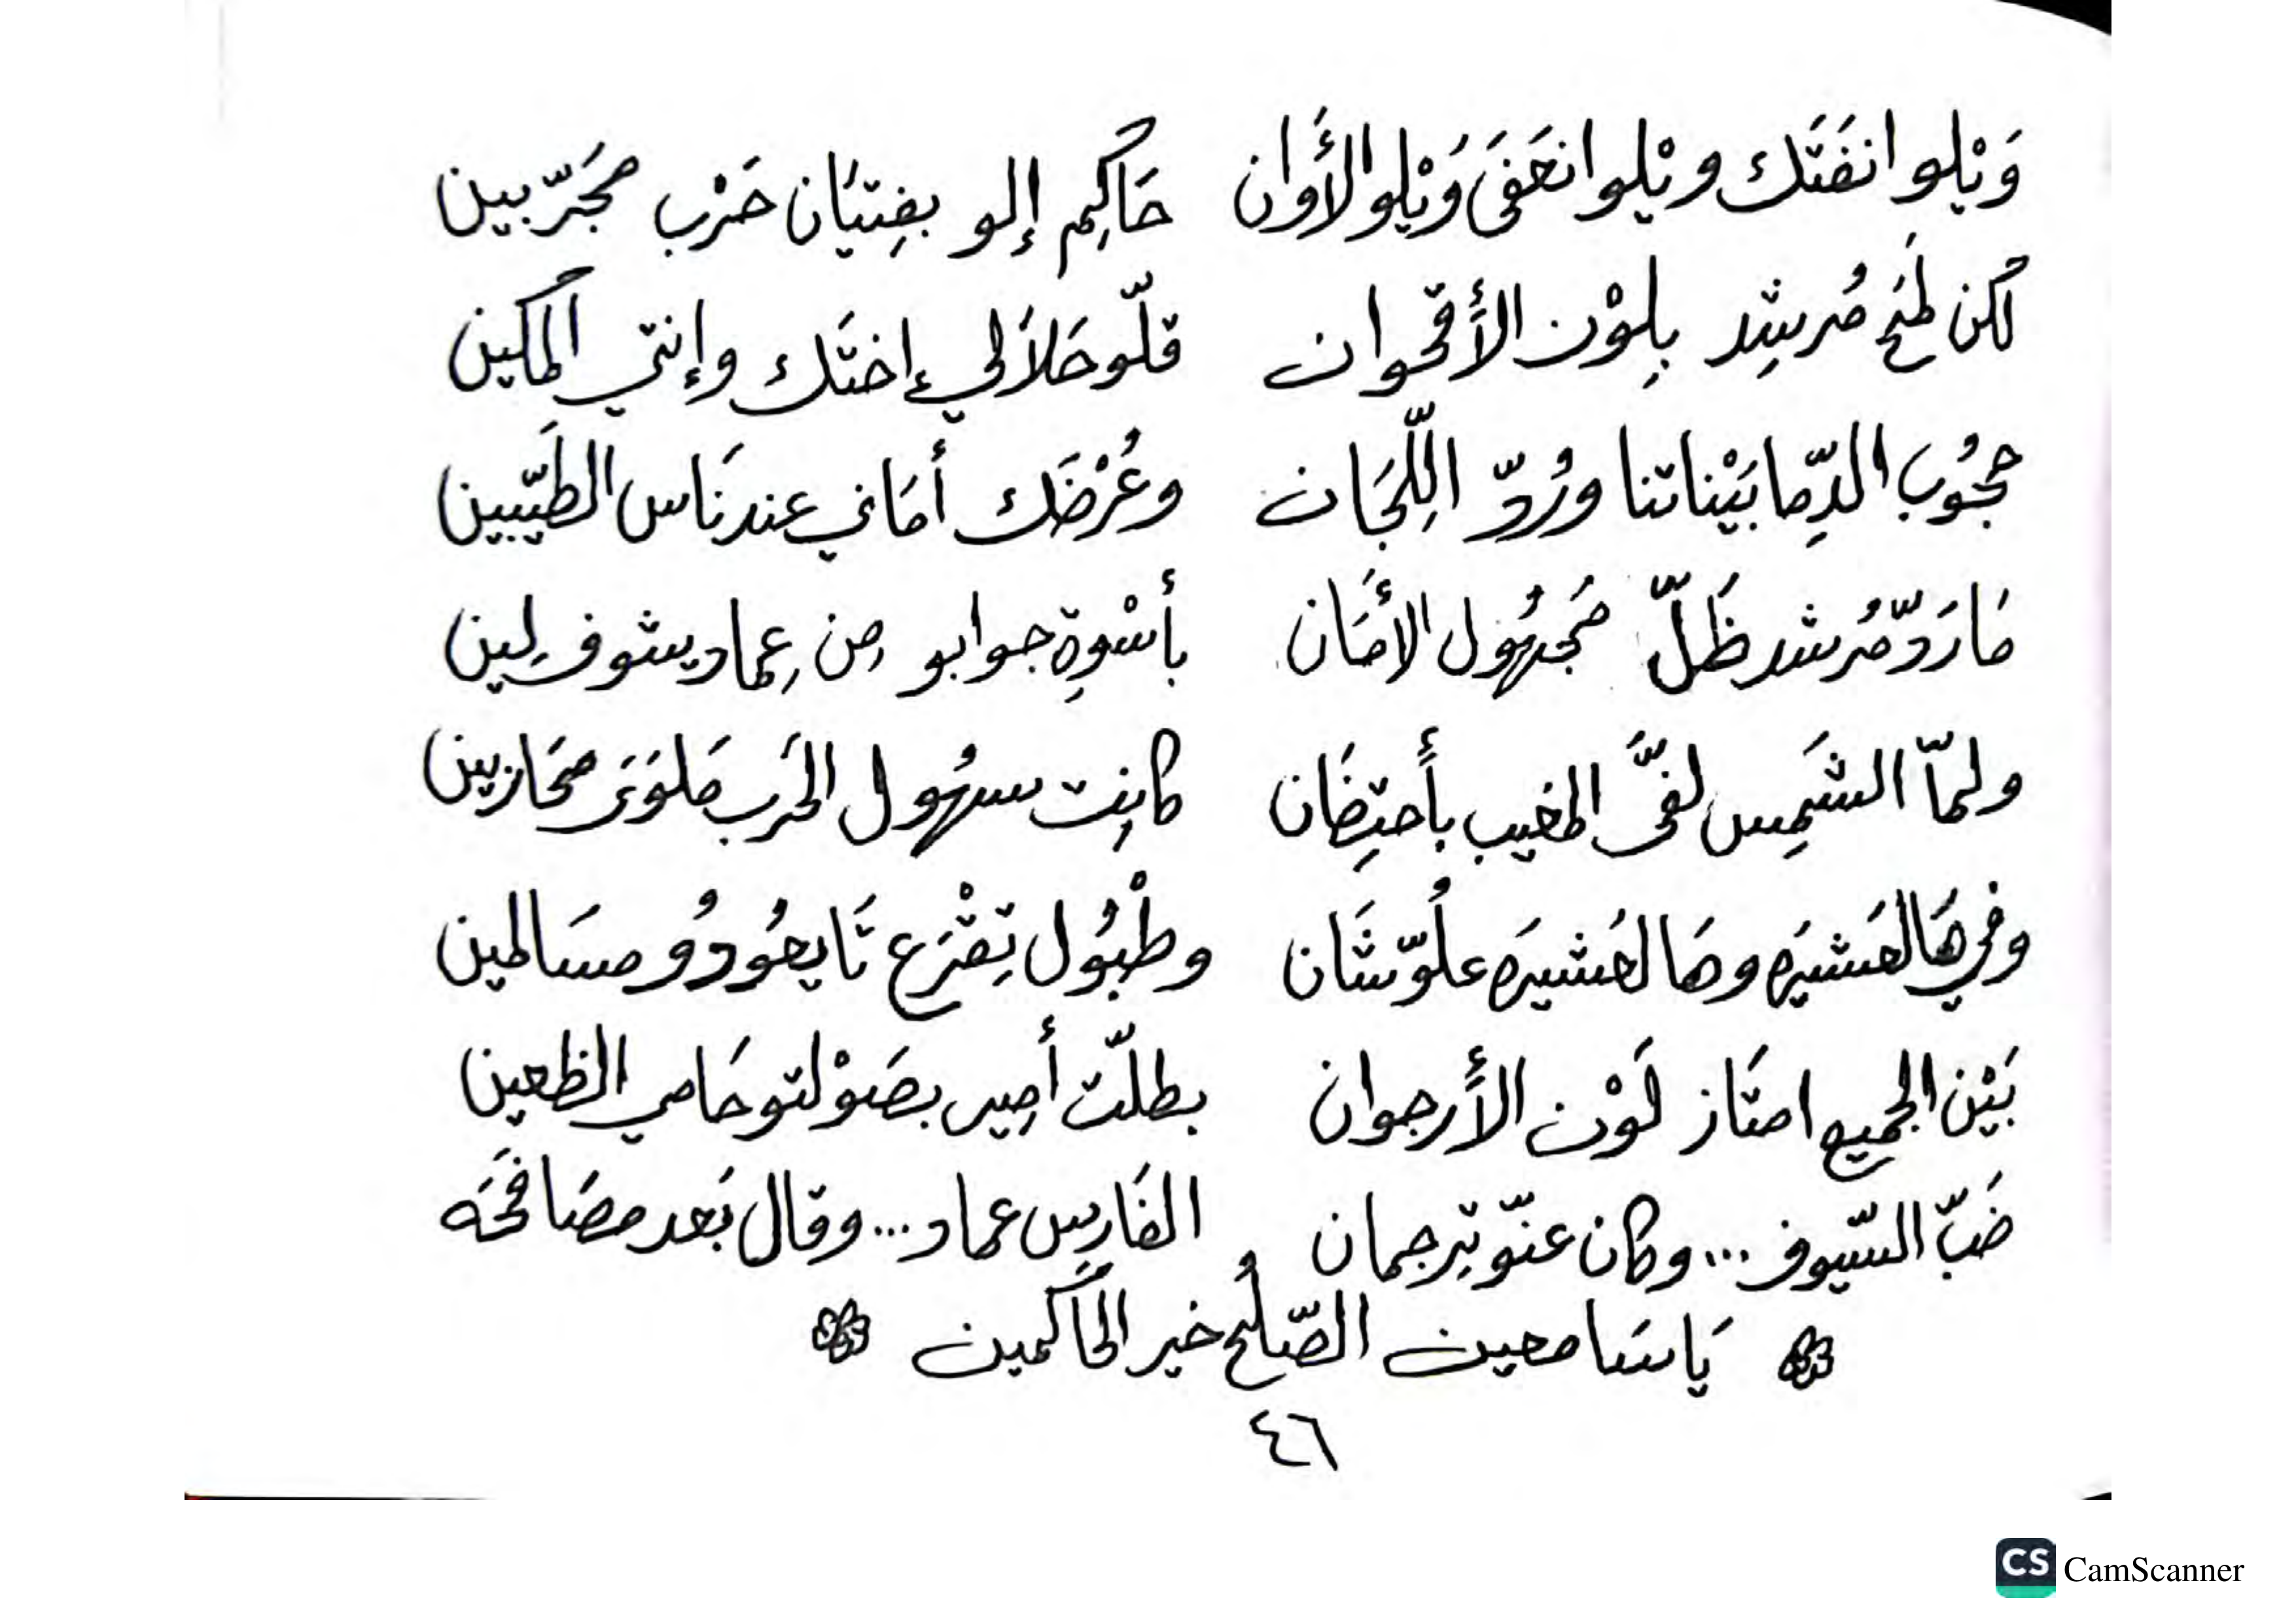 وَيْلو انفَتَك ويْلو انعَفَى وَيْلو الأَوان حَاكِم إلو بفِتيَان حَرْب مجَرّبين
لكن لمَح مُرشِد بِلوْن الأَقحوان قلّو حَلاَلي إختَك وإنتي المَكين
حجُوب الدِّما بَيْناتنا ورُدّ اللِّجَان وعُرْضَك أمَاني عند نَاس الطَيّبين
مَا رَدّ مُرشد ظَلّ مَجهُول الأمَان بأسْوِة جوابو مِن عِماد يشوف لِين
ولمّا الشَمِس لفَّى المغيب بأحتِضَان كانِت سهُول الحَرب مَلوَى محَازبين
وفي هَالعَشيرَه وهَالعَشيرَه علُوّ شَان وطْبُول تِقْرَع تَا يعُودُو مسَالمين
بَيْن الجميع امتَاز لَوْن الأَرجوان بطلّت أمِير بصَوْلتو حَامي الظعين
ضَبّ السّيوف ... وكان عنّو تِرجمان الفَارِس عماد ... وقال بَعد مصَافحَه
يَا سَامعين الصّلُح خير الحَاكمين
٤٦
CS CamScanner